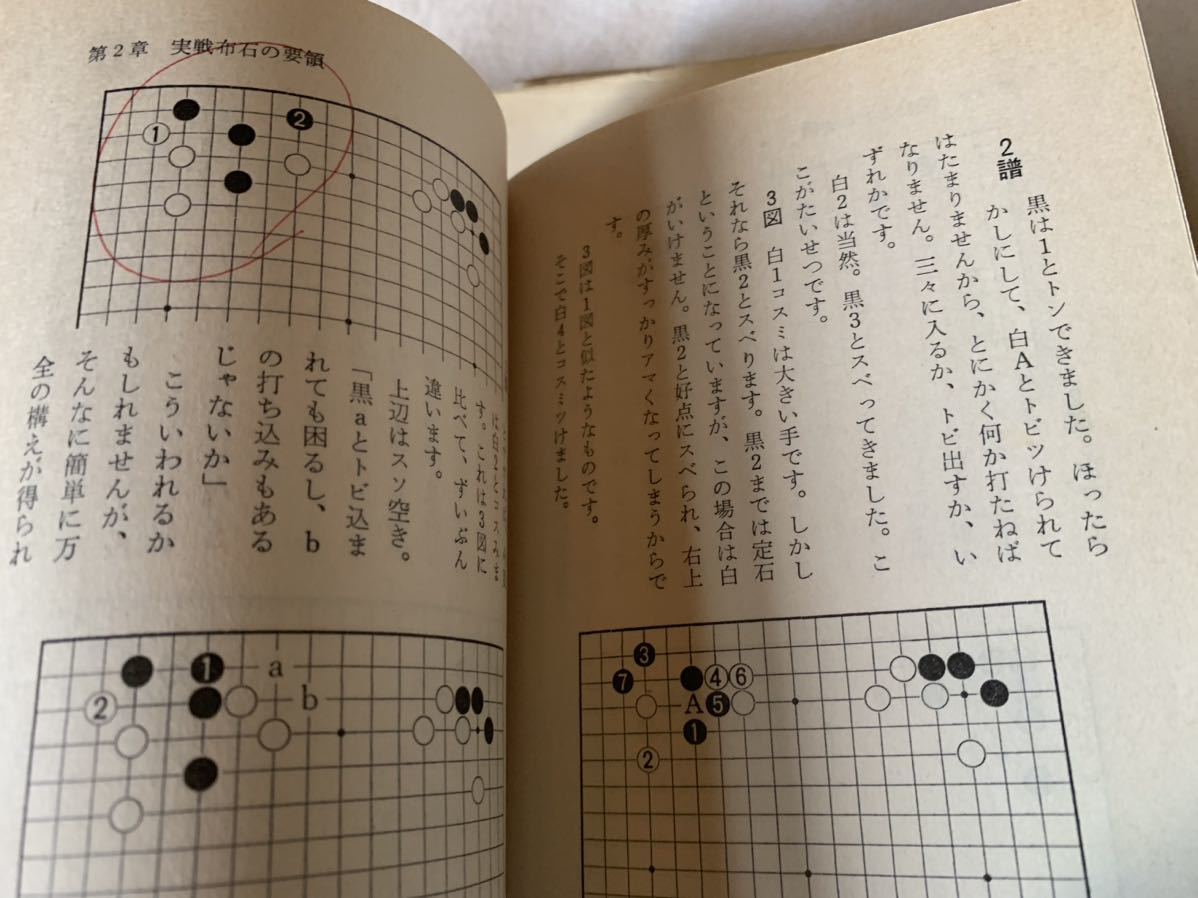 2譜 黒は1とトンできました。ほったら
かしにして、白Aとトビツけられて
はたまりませんから、とにかく何か打たねば
なりません。三々に入るか、トビ出すか、い
ずれかです。
白2は当然。黒3とスベってきました。こ
こがたいせつです。
3図 白1コスミは大きい手です。しかし
それなら黒2とスベります。黒2までは定石
ということになっていますが、この場合は白
がいけません。黒2と好点にスベられ、右上
の厚みがすっかりアマくなってしまうからで
す。
3図は1図と似たようなものです。
そこで白4とコスミツけました。
3
7 4 6
A 5
1
2
第2章 実戦布石の要領
1 2
は白2とコスみま
す。これは3図に
比べて、ずいぶん
違います。
上辺はスソ空き。
「黒aとトビ込ま
れても困るし、b
の打ち込みもある
じゃないか」
こういわれるか
もしれませんが、
そんなに簡単に万
全の構えが得られ
1 a
2 b